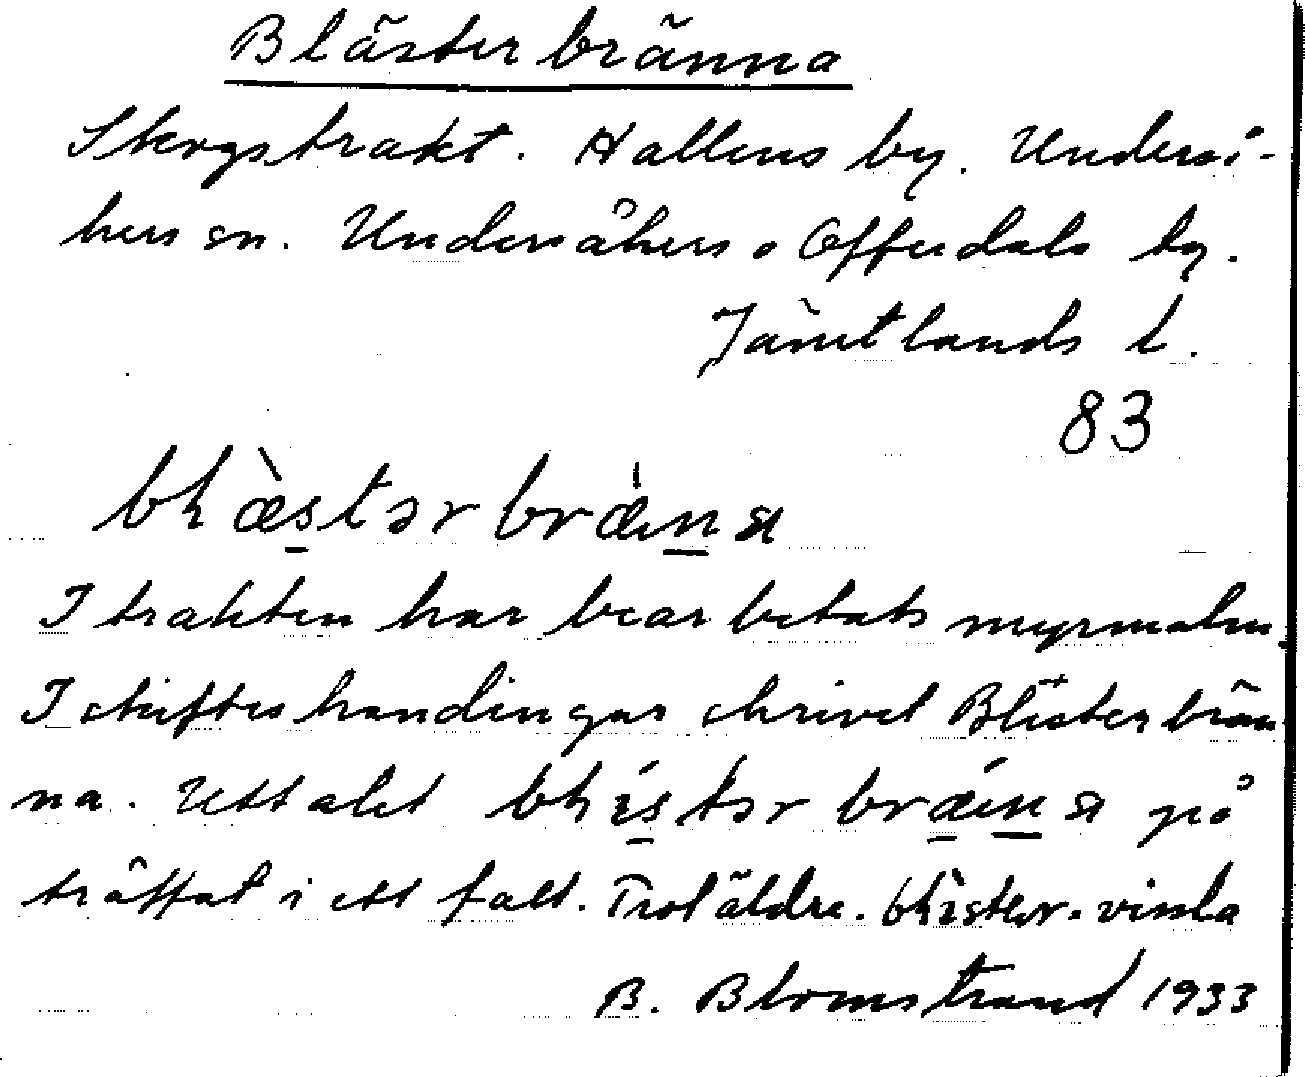 Blästerbränna
Skogstrakt. Hallens by. Underså-
kers sn. Undersåkers o Offerdals tg.
Jämtlands l.
83
bḷæ̀stər bræ̀na
I trakten har bearbetats myrmalm.
I skifteshandlingar skrivet Blisterbrän-
na. Uttalet bḷístər brǽna på
träffat i ett fall. Trol äldre. bḷister- vissla
B. Blomstrand 1933